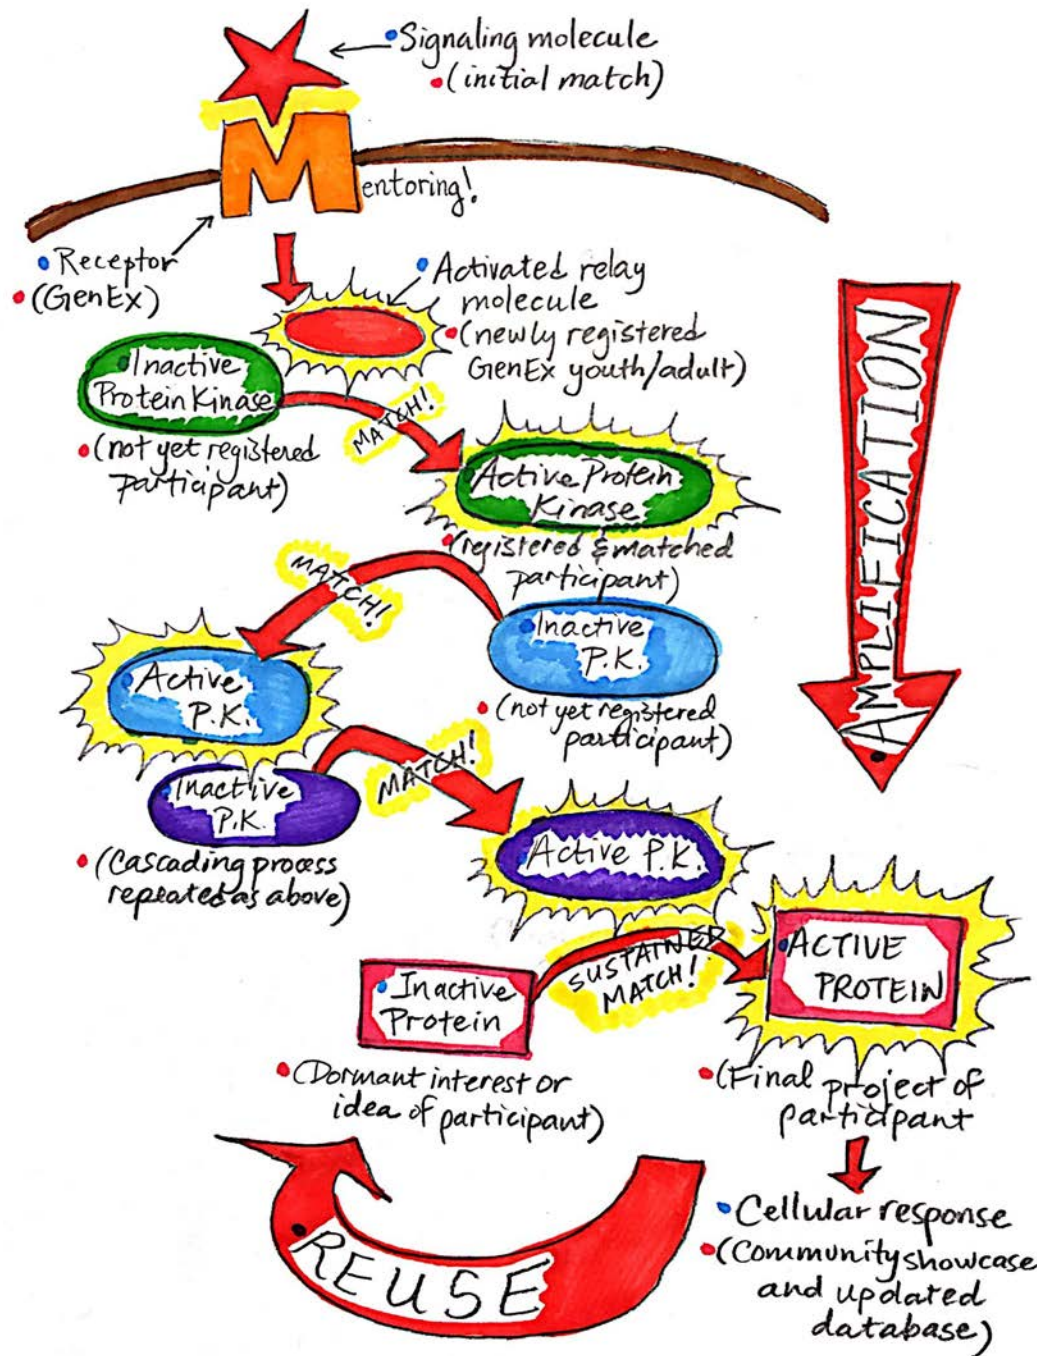 Signaling molecule
(initial match)
Mentoring!
Receptor
(GenEx)
Activated relay
molecule
(newly registered
GenEx youth/adult)
Inactive
Protein Kinase
(not yet registered
participant)
MATCH!
Active Protein
Kinase
(registered & matched
participant)
MATCH!
Inactive
P.K.
(not yet registered
participant)
Active
P.K.
Inactive
P.K.
(Cascading process
repeated as above)
MATCH!
Active P.K.
AMPLIFICATION
SUSTAINED
MATCH!
Inactive
Protein
(Dormant interest or
idea of participant)
ACTIVE
PROTEIN
(Final project of
participant
Cellular response
(Community showcase
and updated
database)
REUSE